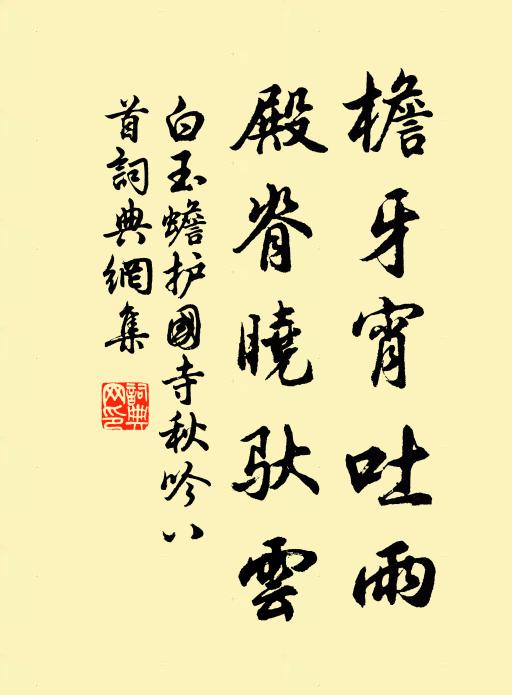 檐牙宵吐雨
殿脊曉馱雲
白玉蟾护國寺秋吟八
首詞典網集
詞典
网印